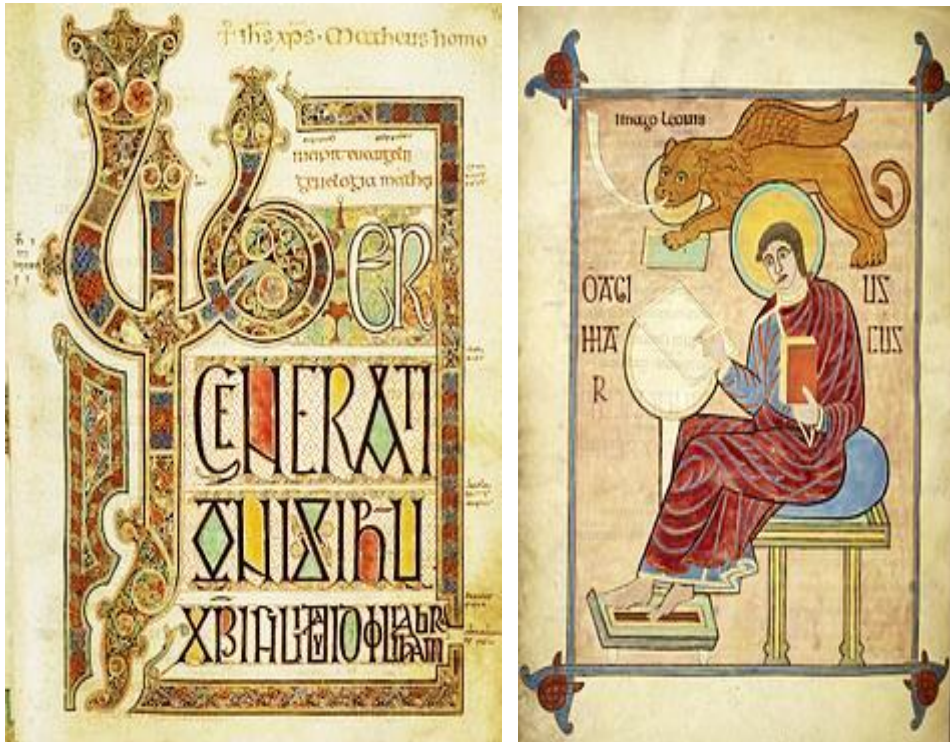 + ihs xps · Matheus homo
incipit euangelii
genelogia mathei
LIBER
GENERATI
ONIS IHU
XPI FILII DAVID FILII ABRAHAM
imago leonis
O AGIUS
MARCUS